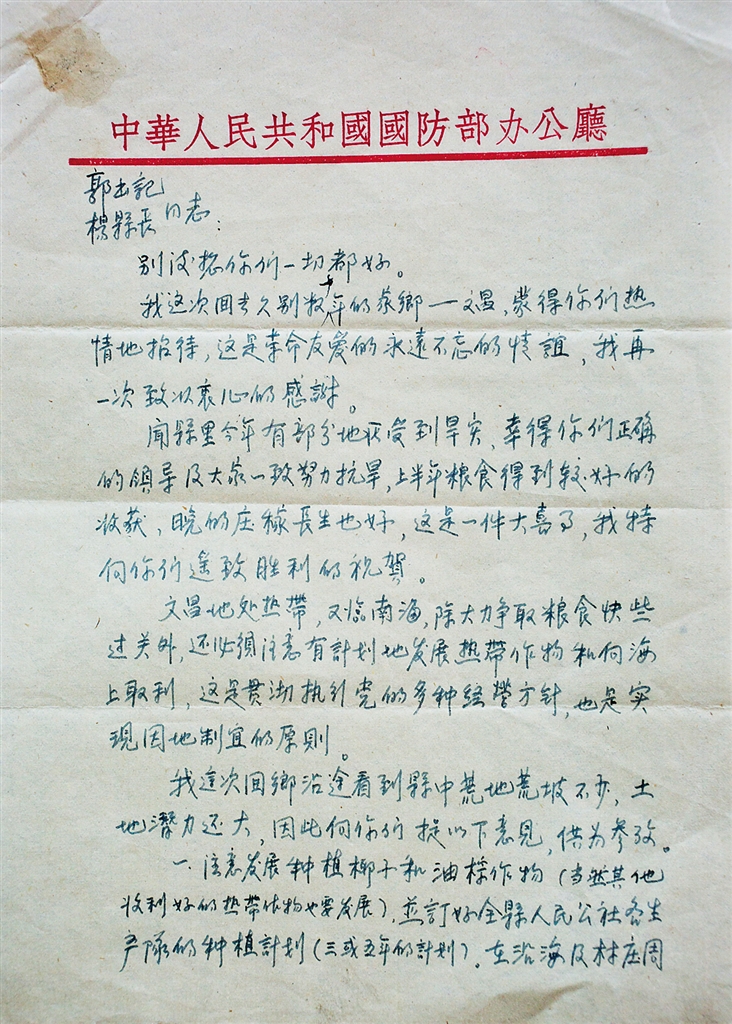 中華人民共和國國防部办公廳
郭书記
楊縣長同志：
别後想你们一切都好。
我这次回去久别数十年的家鄉一文昌，蒙得你们热
情地招待，这是革命友爱的永遠不忘的情誼，我再
一次致以衷心的感謝。
闻縣里今年有部分地区受到旱灾，幸得你们正确
的領导及大家一致努力抗旱，上半年粮食得到较好的
收获，晚的庄稼長生也好，这是一件大喜事，我特
向你们遥致胜利的祝賀。
文昌地处热帶，又临南海，除大力争取粮食快些
过关外，还必須注意有計划地发展热帶作物和向海
上取利，这是贯沏执行党的多种经营方针，也是实
現因地制宜的原則。
我這次回鄉沿途看到縣中荒地荒坡不少，土
地潛力还大，因此向你们提以下意見，供为参攷。
一．注意发展种植椰子和油棕作物（当然其他
收利好的热帶作物也要发展），並訂好全縣人民公社各生
产隊的种植計划（三或五年的計划）。在沿海及村庄周